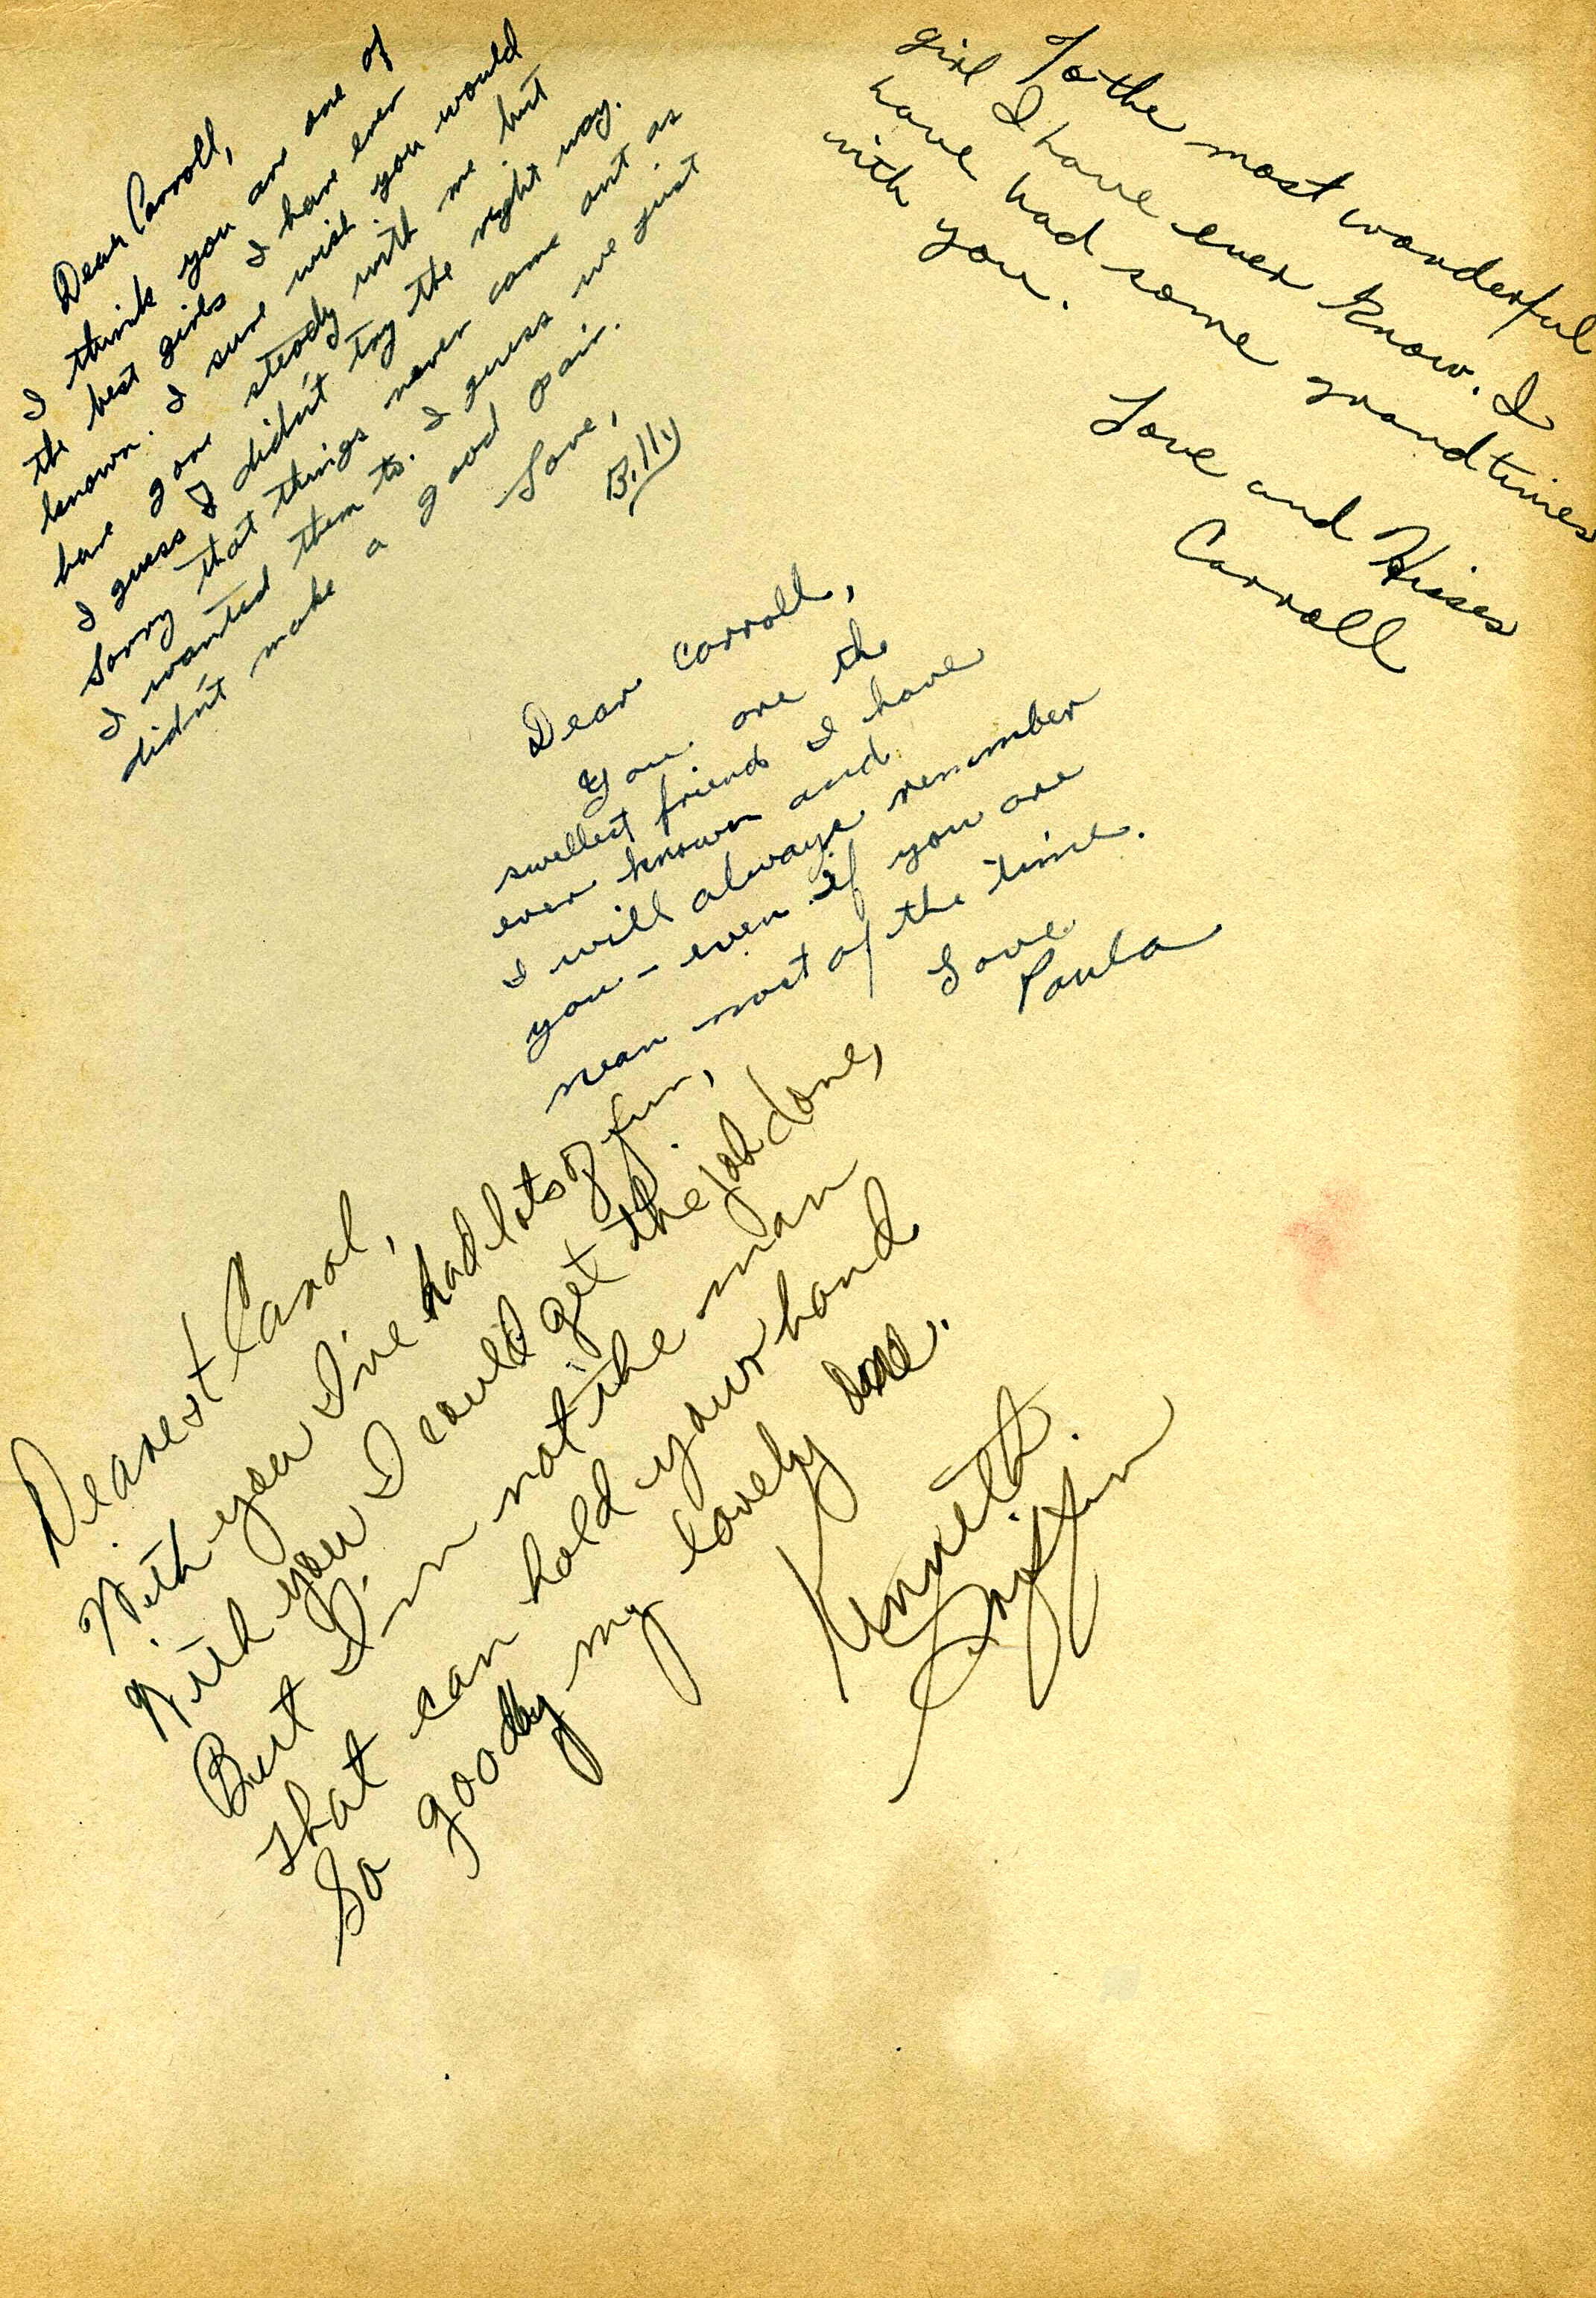 Dear Carroll,
I think you are one of
the best girls I have ever
known. I sure wish you would
have gone steady with me but
I guess I didn't try the right way.
Sorry that things never came out as
I wanted them to. I guess we just
didn't make a good pair.
Love,
Billy
To the most wonderful
girl I have ever know. I
have had some grand times
with you.
Love and Kisses
Carroll
Dear Carroll,
You are the
swellest friend I have
ever known and
I will always remember
you - even if you are
mean most of the time.
Love
Paula
Dearest Carol,
With you I've had lots of fun,
With you I could get the job done,
But I'm not the man
that can hold your hand
So goodby my lovely one.
Kenneth
Griffin